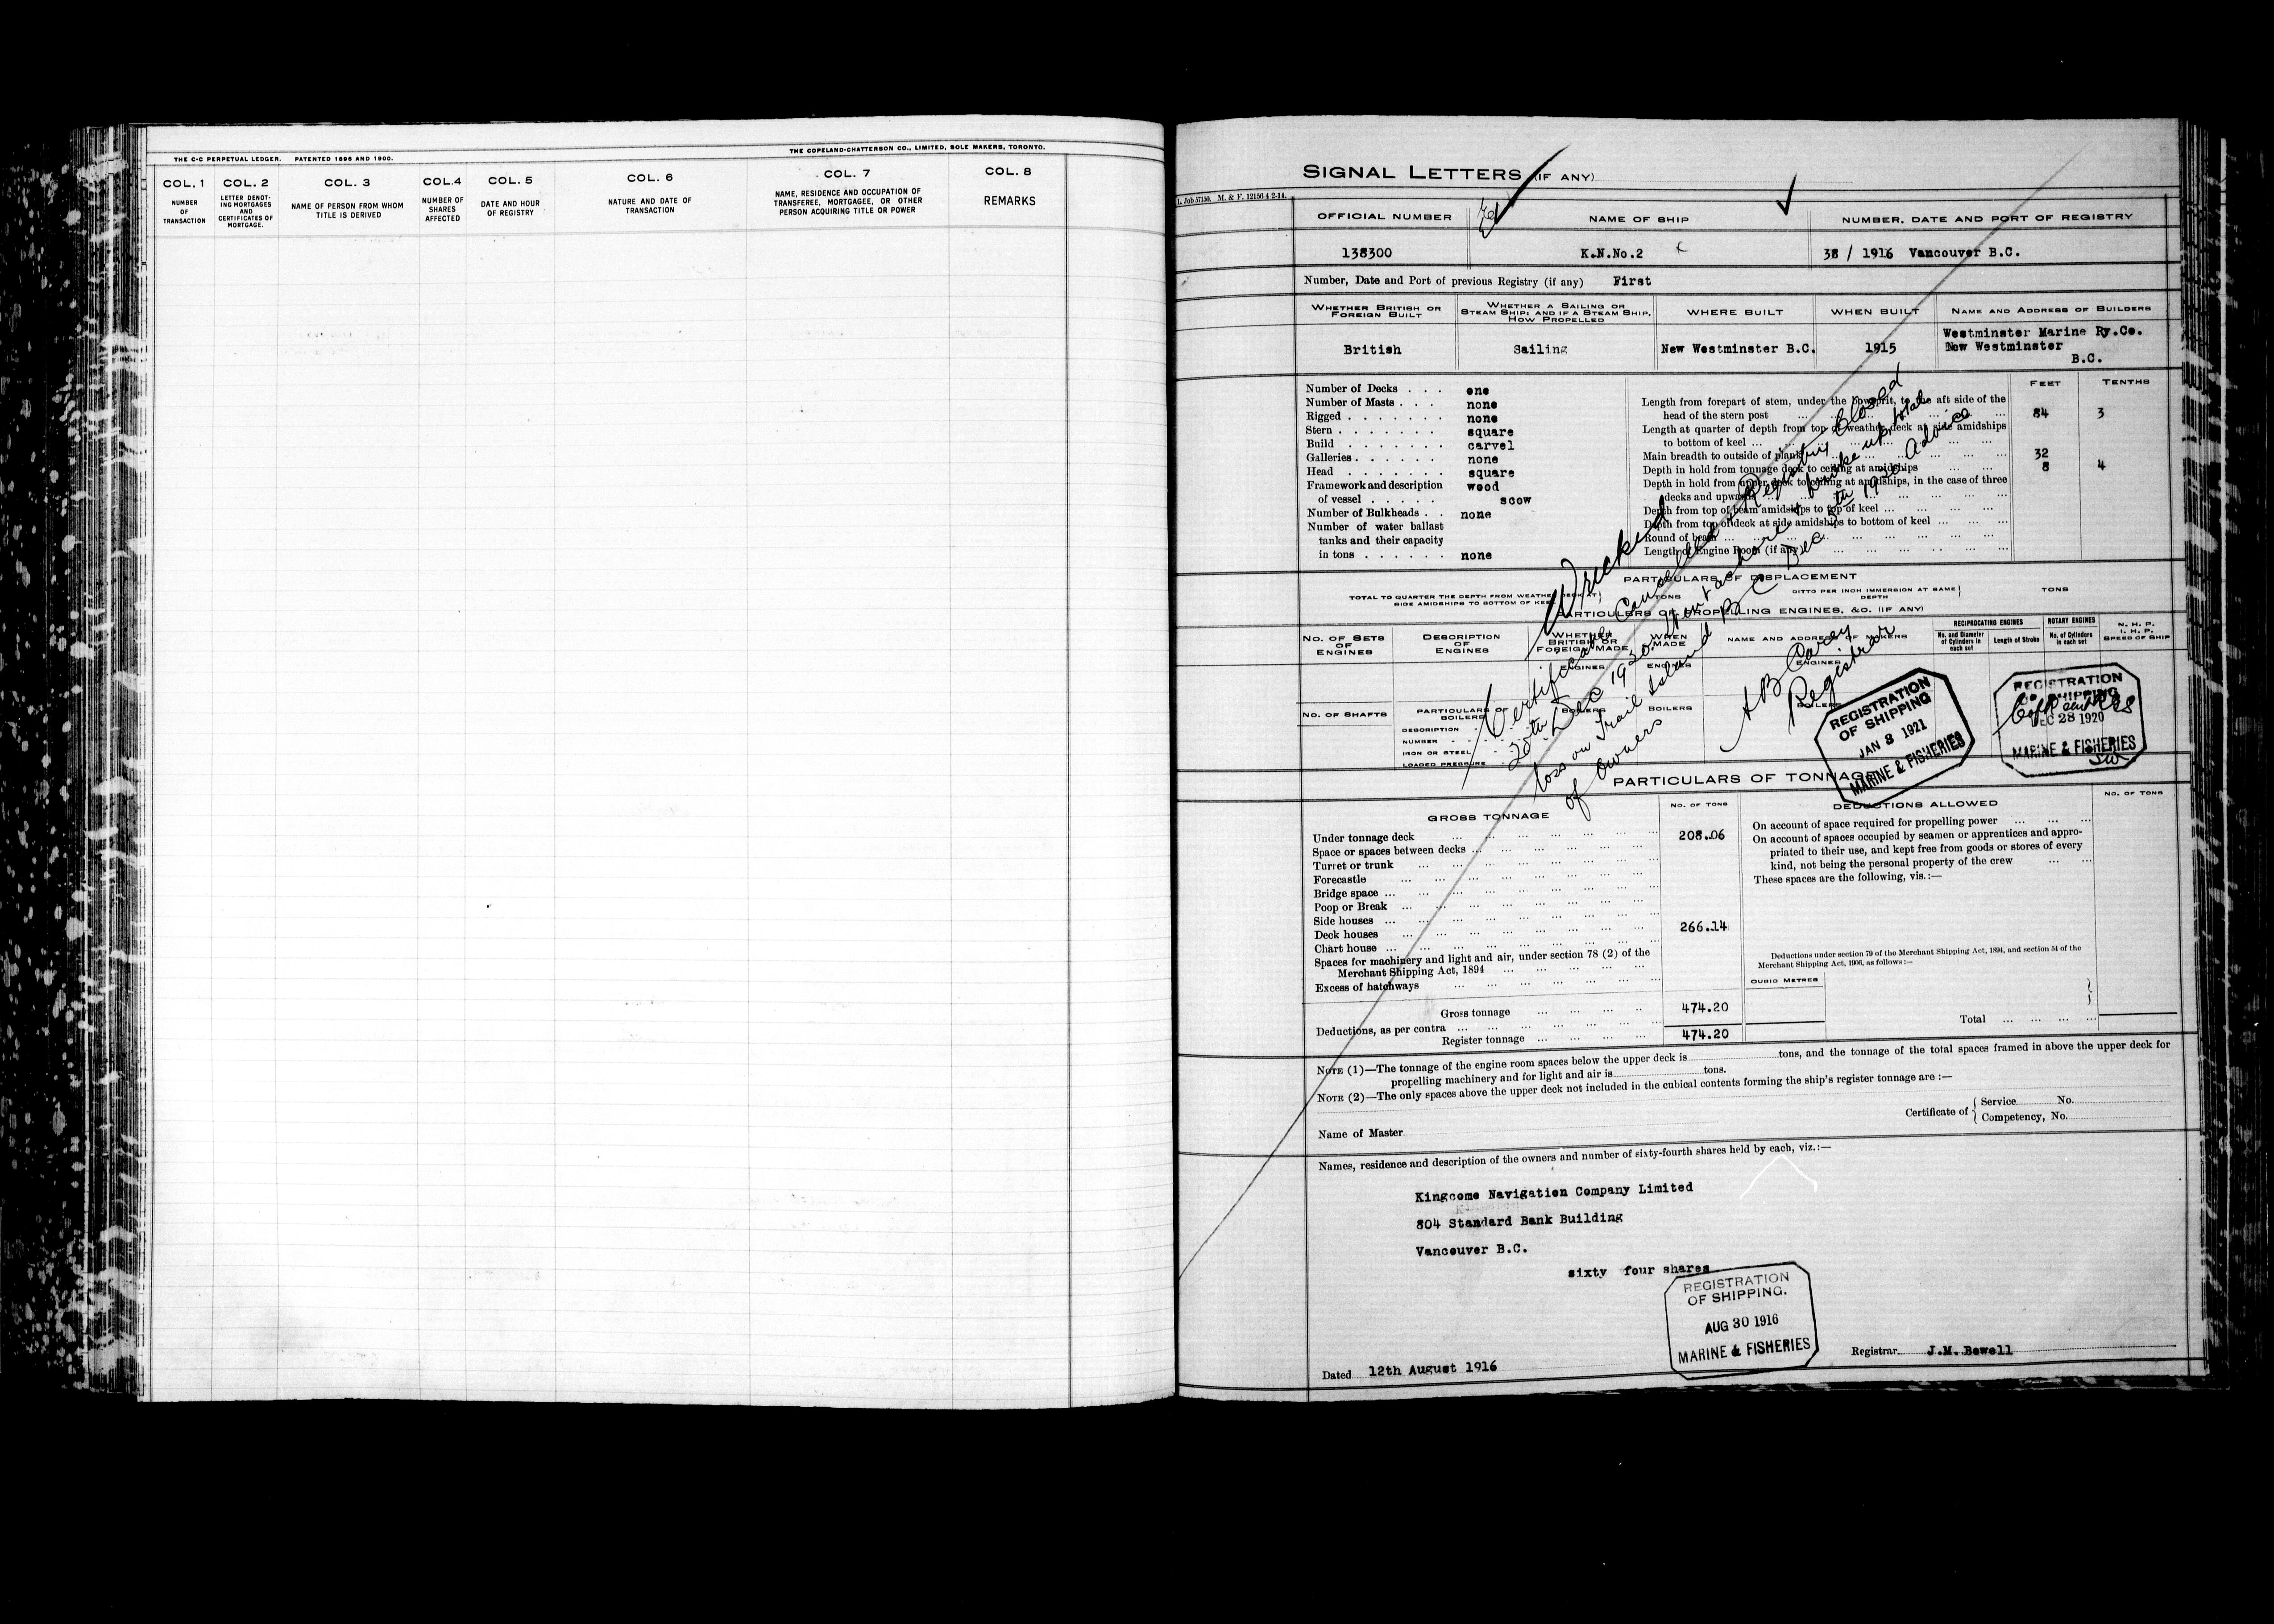 THE C-C PERPETUAL LEDGER. PATENTED 1896 AND 1900.
THE COPELAND-CHATTERSON CO., LIMITED, SOLE MAKERS, TORONTO.
COL. 1 COL. 2 COL. 3 COL. 4 COL. 5 COL. 6 COL. 7 COL. 8
NUMBER OF TRANSACTION
LETTER DENOTING MORTGAGES AND CERTIFICATES OF MORTGAGE.
NAME OF PERSON FROM WHOM TITLE IS DERIVED
NUMBER OF SHARES AFFECTED
DATE AND HOUR OF REGISTRY
NATURE AND DATE OF TRANSACTION
NAME, RESIDENCE AND OCCUPATION OF TRANSFEREE, MORTGAGEE, OR OTHER PERSON ACQUIRING TITLE OR POWER
REMARKS
SIGNAL LETTERS (IF ANY)
OFFICIAL NUMBER NAME OF SHIP NUMBER, DATE AND PORT OF REGISTRY
138300 K.N.No.2 38 / 1916 Vancouver B.C.
Number, Date and Port of previous Registry (if any) First
WHETHER BRITISH OR FOREIGN BUILT
WHETHER A SAILING OR STEAM SHIP; AND IF A STEAM SHIP, HOW PROPELLED
WHERE BUILT WHEN BUILT NAME AND ADDRESS OF BUILDERS
British Sailing New Westminster B.C. 1915
Westminster Marine Ry.Co.
New Westminster
B.C.
FEET TENTHS
Number of Decks . . . one
Number of Masts . . . none
Rigged . . . . . . . none
Stern . . . . . . . square
Build . . . . . . . carvel
Galleries . . . . . . none
Head . . . . . . . square
Framework and description wood
of vessel . . . . . scow
Number of Bulkheads . . none
Number of water ballast
tanks and their capacity
in tons . . . . . . none
Length from forepart of stem, under the bowsprit, to the aft side of the
head of the stern post 84 3
Length at quarter of depth from top of weather deck at side amidships
to bottom of keel
Main breadth to outside of plank 32
Depth in hold from tonnage deck to ceiling at amidships 8 4
Depth in hold from upper deck to ceiling at amidships, in the case of three
decks and upwards
Depth from top of beam amidships to top of keel
Depth from top of deck at side amidships to bottom of keel
Round of beam
Length of Engine Room (if any)
Wrecked
Certificate Cancelled & Registry Closed
20th Dec 1920. Went ashore & broke up total
loss on Trail Island B C Dec 5th 1920 Advice
of Owners
A B Carey
Registrar
PARTICULARS OF DISPLACEMENT
TOTAL TO QUARTER THE DEPTH FROM WEATHER DECK AT SIDE AMIDSHIPS TO BOTTOM OF KEEL
TONS
DITTO PER INCH IMMERSION AT SAME DEPTH
TONS
PARTICULARS OF PROPELLING ENGINES, &C. (IF ANY)
NO. OF SETS OF ENGINES
DESCRIPTION OF ENGINES
WHETHER BRITISH OR FOREIGN MADE
WHEN MADE
NAME AND ADDRESS OF MAKERS
RECIPROCATING ENGINES
No. and Diameter of Cylinders in each set
Length of Stroke
ROTARY ENGINES
No. of Cylinders in each set
N. H. P.
I. H. P.
SPEED OF SHIP
ENGINES ENGINES ENGINES
NO. OF SHAFTS
PARTICULARS OF BOILERS
BOILERS BOILERS BOILERS
DESCRIPTION
NUMBER
IRON OR STEEL
LOADED PRESSURE
REGISTRATION
OF SHIPPING
JAN 8 1921
MARINE & FISHERIES
REGISTRATION
OF SHIPPING
DEC 28 1920
MARINE & FISHERIES
PARTICULARS OF TONNAGE
GROSS TONNAGE NO. OF TONS DEDUCTIONS ALLOWED NO. OF TONS
Under tonnage deck 208.06
Space or spaces between decks
Turret or trunk
Forecastle
Bridge space
Poop or Break
Side houses
Deck houses 266.14
Chart house
Spaces for machinery and light and air, under section 78 (2) of the
Merchant Shipping Act, 1894
Excess of hatchways
Gross tonnage 474.20
Deductions, as per contra
Register tonnage 474.20
On account of space required for propelling power
On account of spaces occupied by seamen or apprentices and appro-
priated to their use, and kept free from goods or stores of every
kind, not being the personal property of the crew
These spaces are the following, vis.:—
Deductions under section 79 of the Merchant Shipping Act, 1894, and section 54 of the
Merchant Shipping Act, 1906, as follows:—
CUBIC METRES
Total
NOTE (1)—The tonnage of the engine room spaces below the upper deck is tons, and the tonnage of the total spaces framed in above the upper deck for
propelling machinery and for light and air is tons.
NOTE (2)—The only spaces above the upper deck not included in the cubical contents forming the ship's register tonnage are :—
Name of Master
Certificate of { Service No.
Competency, No.
Names, residence and description of the owners and number of sixty-fourth shares held by each, viz.:—
Kingcome Navigation Company Limited
804 Standard Bank Building
Vancouver B.C.
sixty four shares
REGISTRATION
OF SHIPPING.
AUG 30 1916
MARINE & FISHERIES
Dated 12th August 1916
Registrar J.M.Bewell